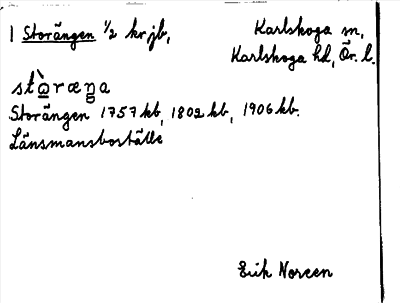 1 Storängen ½ kr jb, Karlskoga sn,
Karlskoga hd, Ör. l.
stò̱ræŋa
Storängen 1757 kb, 1802 kb, 1906 kb.
Länsmansboställe
Erik Noreen